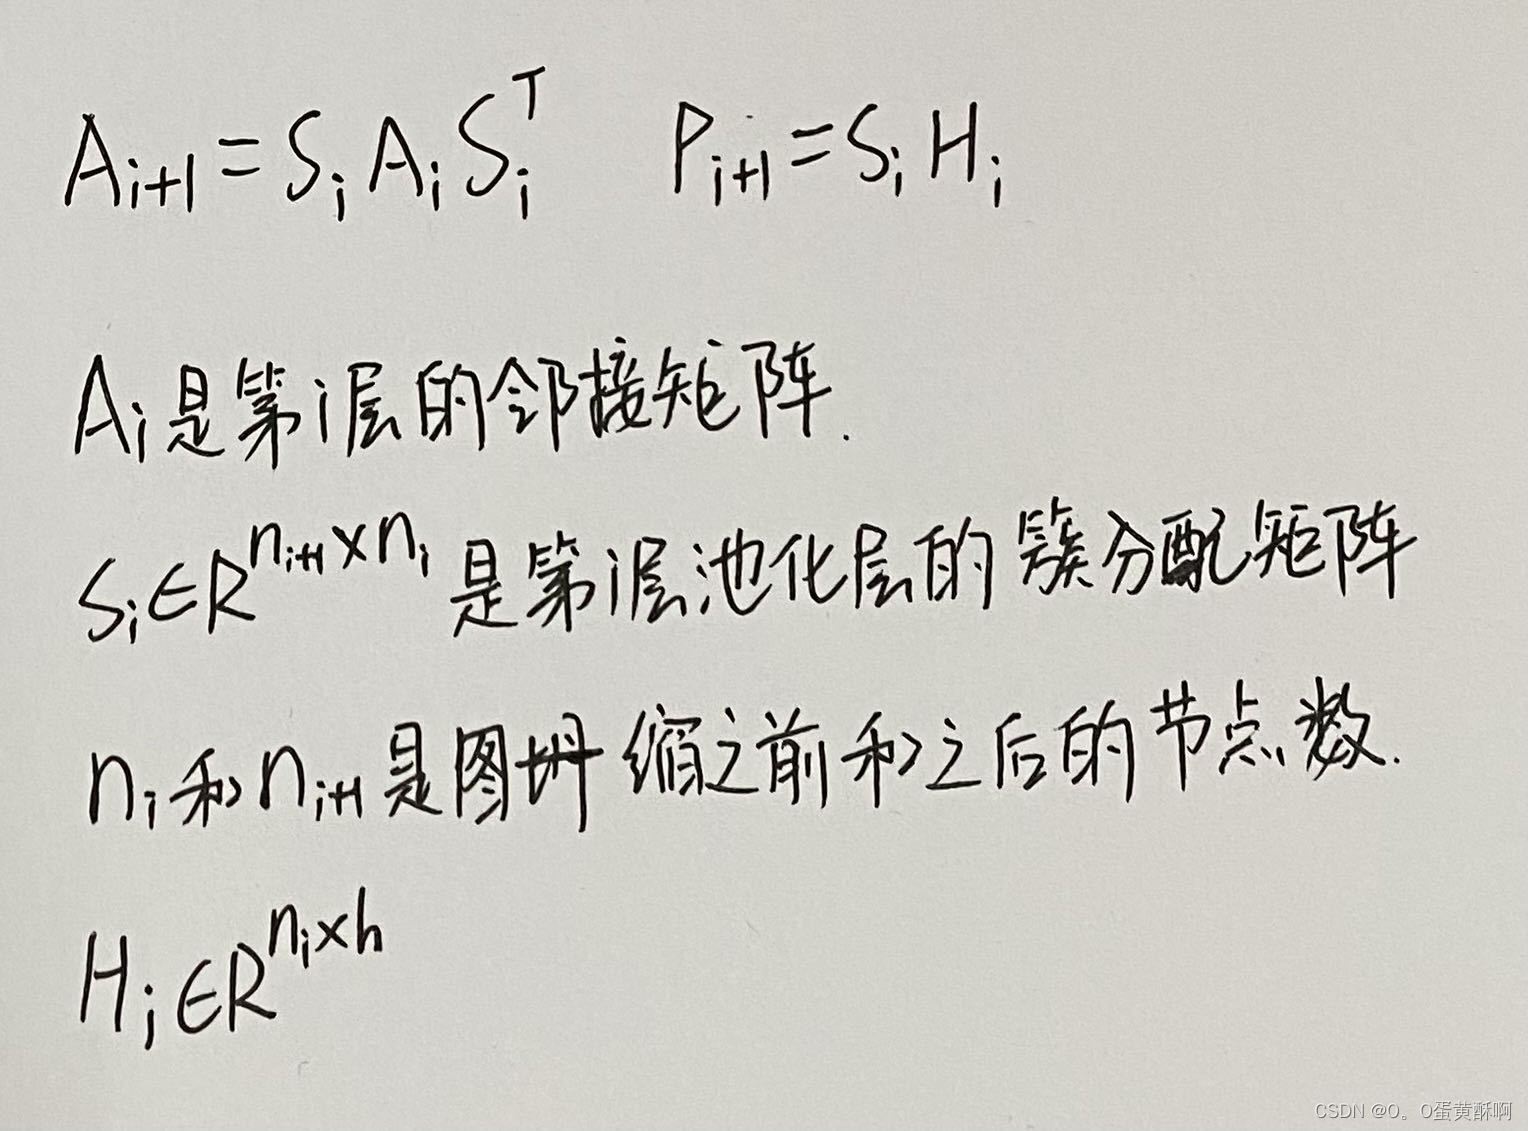 A_{i+1}=S_iA_iS_i^T P_{i+1}=S_iH_i
A_i是第i层的邻接矩阵.
S_i∈R^{n_{i+1}×n_i}是第i层池化层的簇分配矩阵
n_i和n_{i+1}是图坍缩之前和之后的节点数.
H_i∈R^{n_i×h}
CSDN @O。O蛋黄酥啊